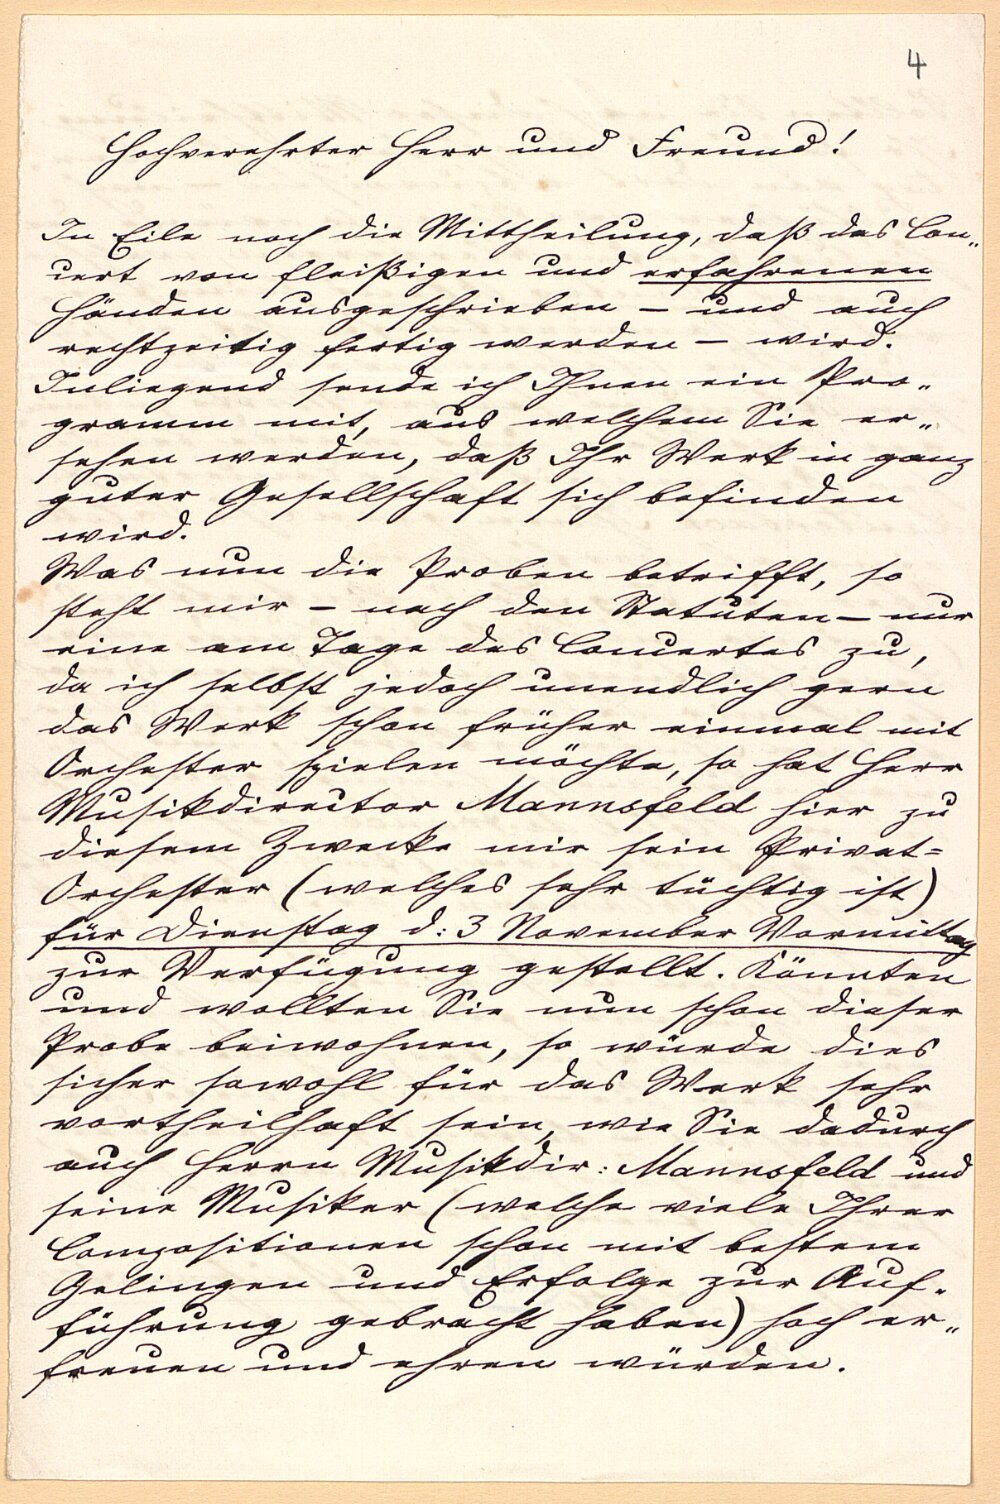 4
Hochverehrter Herr und Freund!
In Eile noch die Mittheilung, daß das Con„
cert von fleißigen und erfahrenen
Händen ausgeschrieben – und auch
rechtzeitig fertig werden – wird.
Inliegend sende ich Ihnen ein Pro„
gramm mit, aus welchem Sie er„
sehen werden, daß Ihr Werk in ganz
guter Gesellschaft sich befinden
wird.
Was nun die Proben betrifft, so
steht mir – nach den Statuten – nur
eine am Tage des Concertes zu,
da ich selbst jedoch unendlich gern
das Werk schon früher einmal mit
Orchester spielen möchte, so hat Herr
Musikdirector Mannsfeld hier zu
diesem Zwecke mir sein Privat=
Orchester (welches sehr tüchtig ist)
für Dienstag d: 3 November Vormittag
zur Verfügung gestellt. Könnten
und wollten Sie nun schon dieser
Probe beiwohnen, so würde dies
sicher sowohl für das Werk sehr
vortheilhaft sein, wie Sie dadurch
auch Herrn Musikdir: Mannsfeld und
seine Musiker (welche viele Ihrer
Compositionen schon mit bestem
Gelingen und Erfolge zur Auf„
führung gebracht haben) hoch er„
freuen und ehren würden.